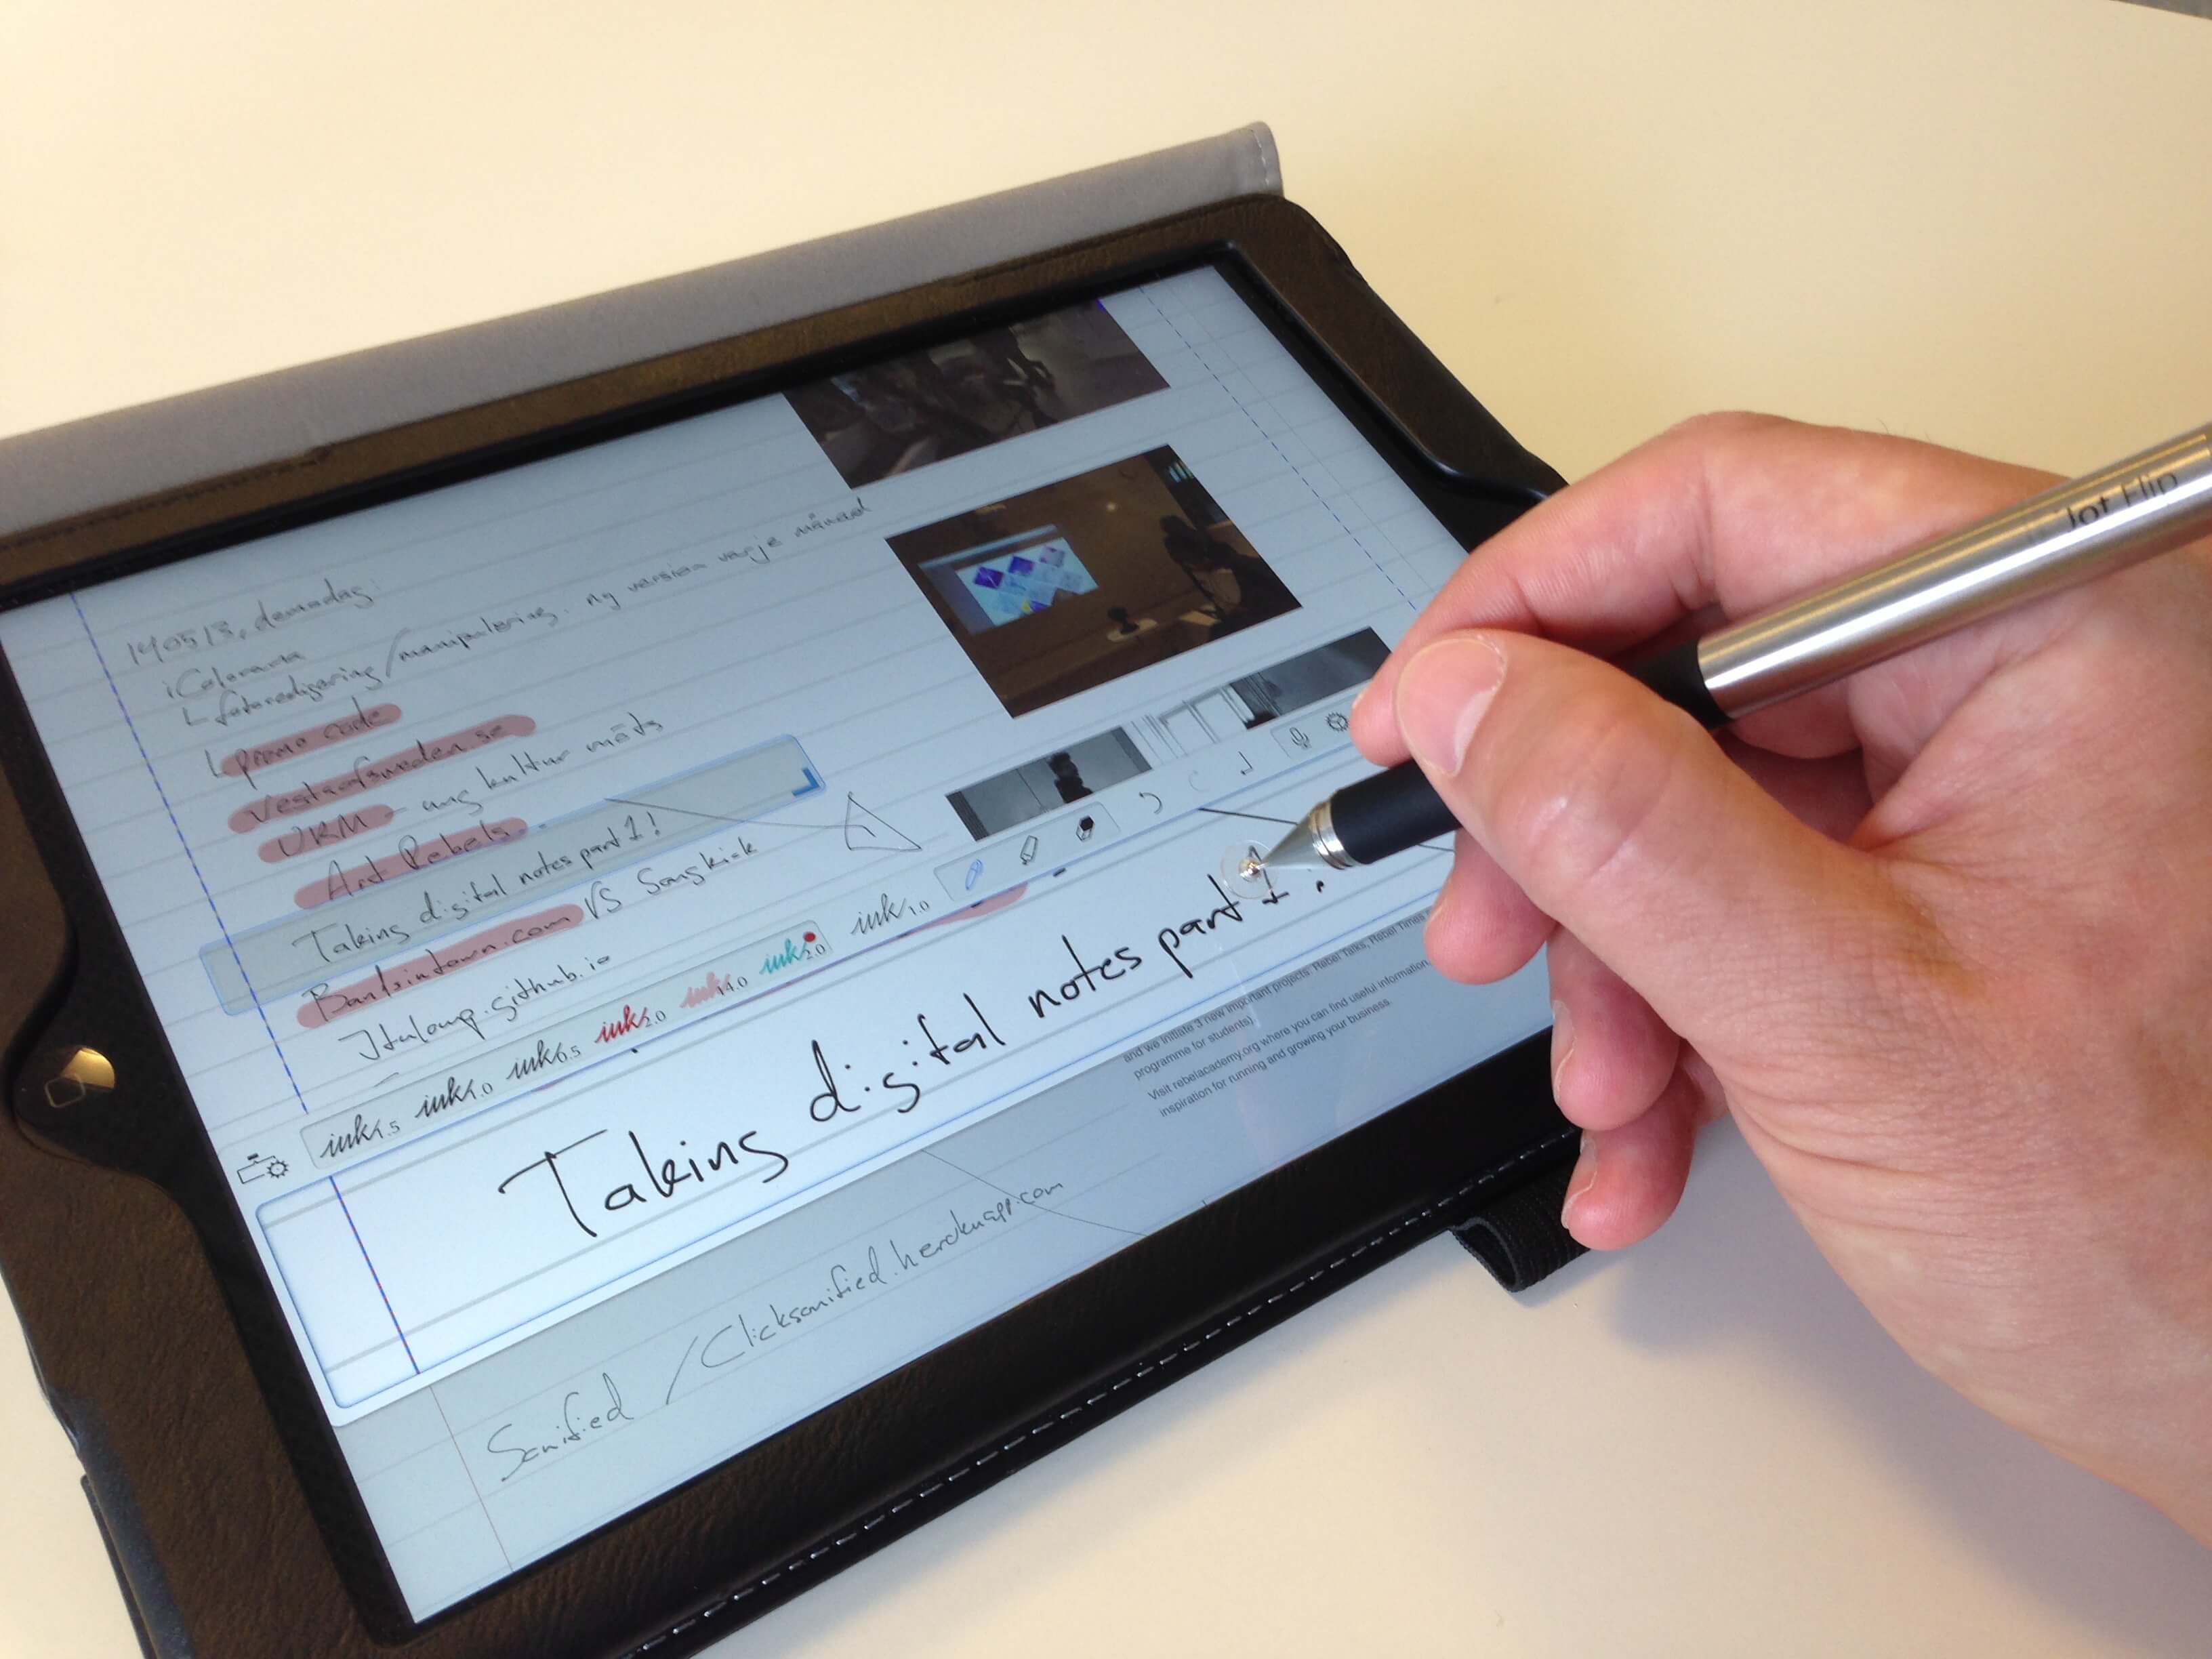 140513, demodag:
iColorama
L fotoredigering/manipulering. ny version varje månad
L promo code
Vestaofsweden.se
UKM - ung kultur möts
Art Rebels
Taking digital notes part 1!
Bandsintown.com VS Songkick
github.io
ink1.5 ink1.0 ink0.5 ink2.0 ink14.0 ink2.0 ink1.0
Taking digital notes part 1!
and we initiate 3 new important projects: Rebel Talks, Rebel Times
programme for students)
Visit rebelacademy.org where you can find useful information
inspiration for running and growing your business.
Sonified / Clicksonified.herokuapp.com
Jot Flip